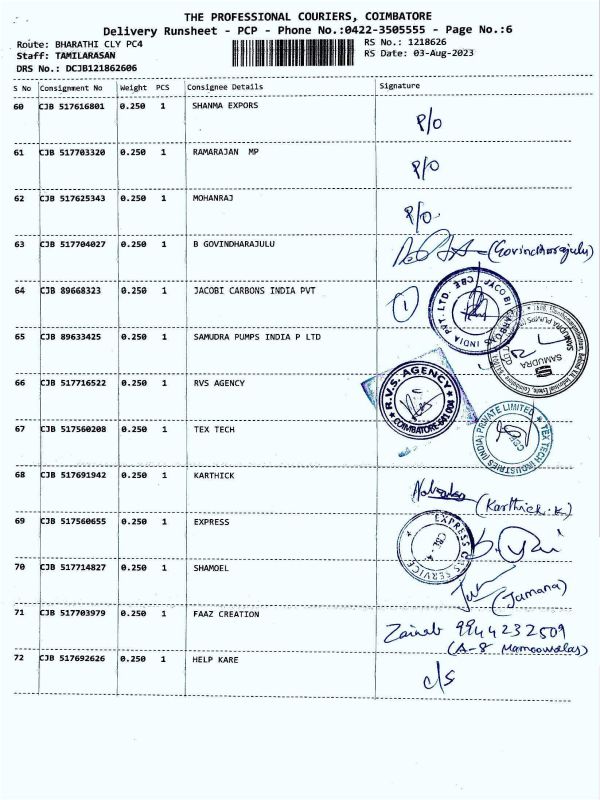 THE PROFESSIONAL COURIERS, COIMBATORE
Delivery Runsheet - PCP - Phone No.:0422-3505555 - Page No.:6
Route: BHARATHI CLY PC4 RS No.: 1218626
Staff: TAMILARASAN RS Date: 03-Aug-2023
DRS No.: DCJB121862606
S No Consignment No Weight PCS Consignee Details Signature
60 CJB 517616801 0.250 1 SHANMA EXPORS P/O
61 CJB 517703320 0.250 1 RAMARAJAN MP P/O
62 CJB 517625343 0.250 1 MOHANRAJ P/O.
63 CJB 517704027 0.250 1 B GOVINDHARAJULU (Govindharajulu)
64 CJB 89668323 0.250 1 JACOBI CARBONS INDIA PVT 1
JACOBI CARBONS INDIA PVT. LTD. CBE
65 CJB 89633425 0.250 1 SAMUDRA PUMPS INDIA P LTD
SAMUDRA
66 CJB 517716522 0.250 1 RVS AGENCY
R.V.S. AGENCY
COIMBATORE-641 004
67 CJB 517560208 0.250 1 TEX TECH
TEX TECH INDUSTRIES (INDIA) PRIVATE LIMITED
CBE
68 CJB 517691942 0.250 1 KARTHICK (Karthick.K)
69 CJB 517560655 0.250 1 EXPRESS
EXPRESS GAS SERVICE
CBE. 4
70 CJB 517714827 0.250 1 SHAMOEL (Jamana)
71 CJB 517703979 0.250 1 FAAZ CREATION Zainab 9944232509
(A-8 Mamoowalas)
72 CJB 517692626 0.250 1 HELP KARE c/s